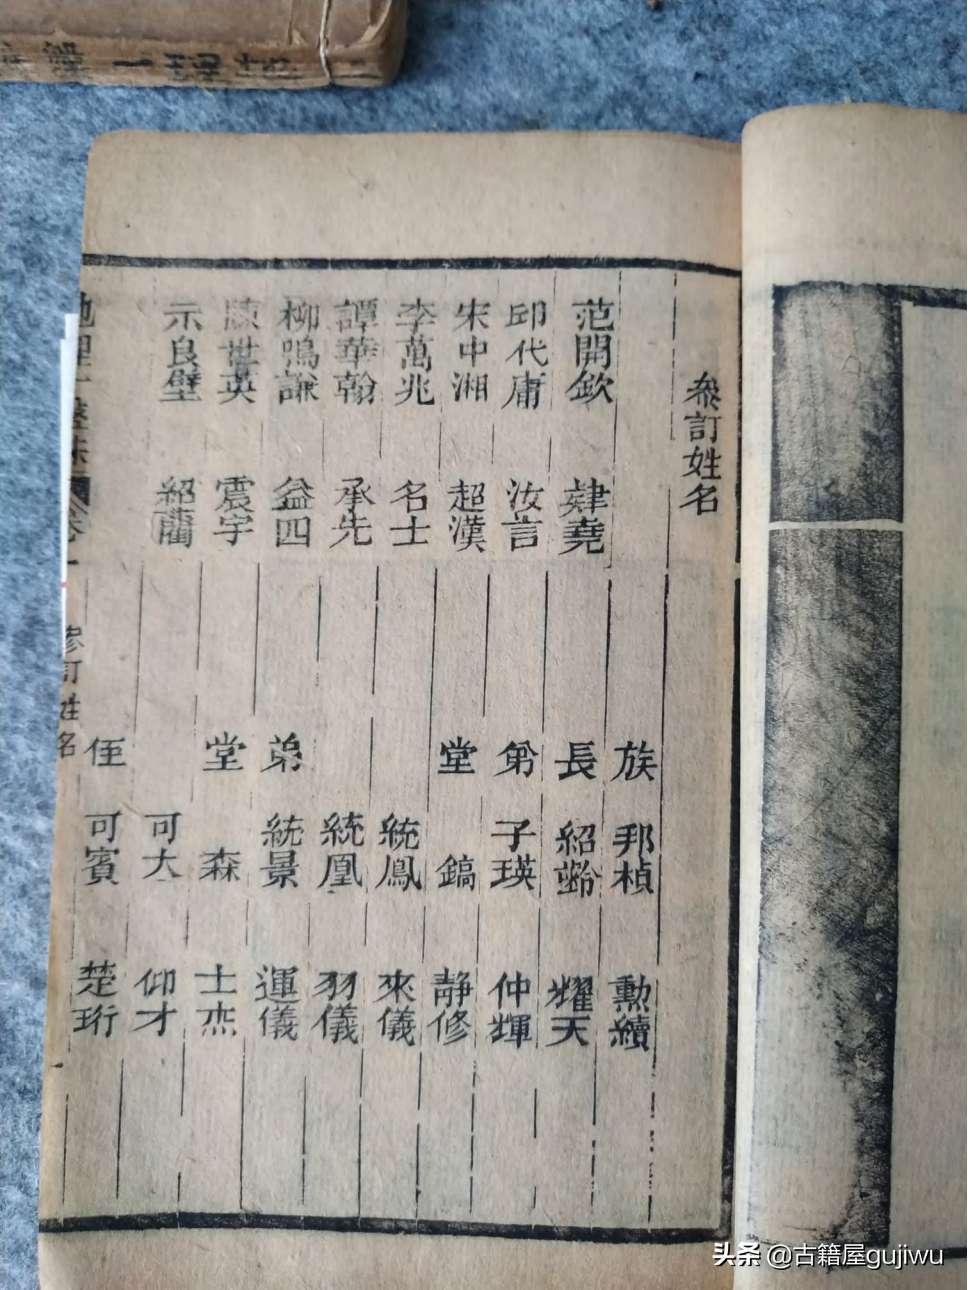 參訂姓名
范開欽 肆堯
邱代庸 汝言
宋中湘 超漢
李萬兆 名士
譚華翰 承先
柳鳴謙 益四
陳世英 震宇
示良璧 紹藺
族 邦楨 勲績
長 紹齡 耀天
弟 子瑛 仲輝
堂 鎬 靜修
統鳳 來儀
統凰 羽儀
弟 統景 運儀
堂 森 士杰
可大 仰才
侄 可賓 楚珩
地理一 卷一 參訂姓名
头条 @古籍屋gujiwu